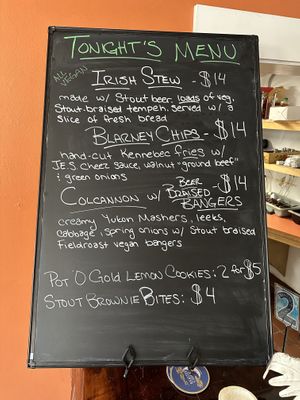 TONIGHT'S MENU
ALL VEGAN
IRISH STEW - $14
made w/ Stout beer, loads of veg,
Stout-braised tempeh. Served w/ a
slice of fresh bread
BLARNEY CHIPS - $14
hand-cut Kennebec fries w/
JES cheez sauce, walnut "ground beef"
& green onions
COLCANNON w/ BEER BRAISED BANGERS - $14
creamy Yukon Mashers, leeks,
cabbage, spring onions w/ Stout braised
Fieldroast vegan bangers
POT 'O GOLD LEMON COOKIES: 2 for $5
STOUT BROWNIE BITES: $4